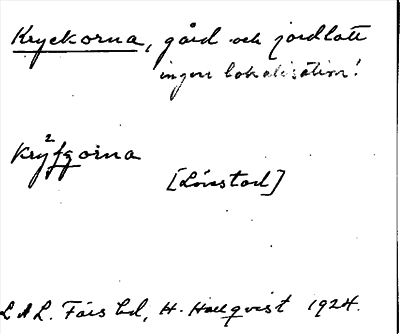 Kryckorna, gård och jordlott
ingen lokalisation!
krýfgorna
[Lövstad]
L A L. Fårs hd, H. Hallqvist 1924.